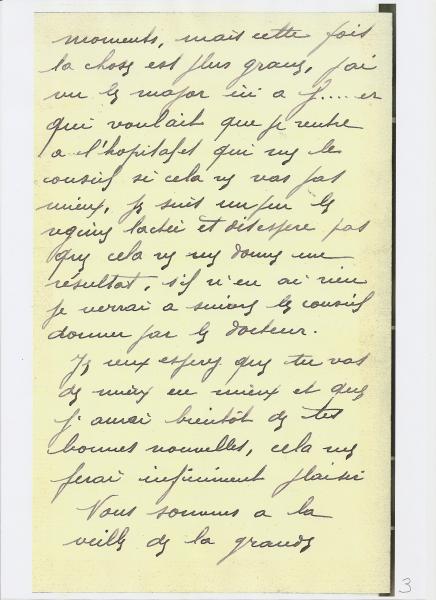 moments, mais cette fois
la chose est plus grave, j'ai
vu le major ici a J.... er
qui voulait que je rentre
a l'hopital et qui me le
conseil si cela ne vas pas
mieux, je suis un peu le
régime lactée et désespere pas
que cela ne me donne un
résultat, s'il n'en ai rien
je verrai a suivre le conseil
donner par le docteur.
Je veux espere que tu vas
de mieux en mieux et que
j'aurai bientôt de tes
bonnes nouvelles, cela me
ferai infiniment plaisir
Nous sommes a la
veille de la grande
3